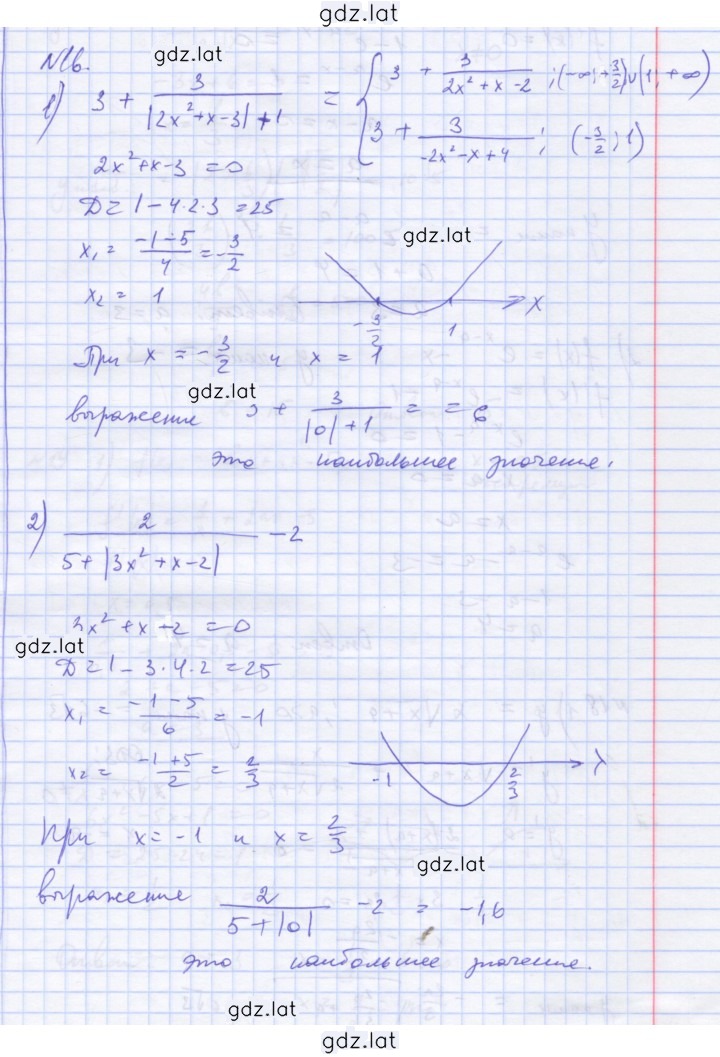 gdz.lat
gdz.lat
№16.
1) 3 + 3/(|2x²+x-3|+1) = { 3 + 3/(2x²+x-2) ; (-∞; +3/2)∪(1, +∞)
3 + 3/(-2x²-x+4) ; (-3/2; 1)
2x²+x-3 = 0
D = 1-4·2·3 = 25
gdz.lat
x₁ = (-1-5)/4 = -3/2
x₂ = 1
-3/2 1 x
При x = -3/2 и x = 1
gdz.lat
выражение 3 + 3/(|0|+1) = = 6
это наибольшее значение.
2) 2/(5+|3x²+x-2|) -2
3x²+x-2 = 0
gdz.lat
D = 1-3·4·2 = 25
x₁ = (-1-5)/6 = -1
x₂ = (-1+5)/2 = 2/3
-1 2/3 x
При x = -1 и x = 2/3
gdz.lat
выражение 2/(5+|0|) -2 = -1,6
это наибольшее значение.
gdz.lat
gdz.lat